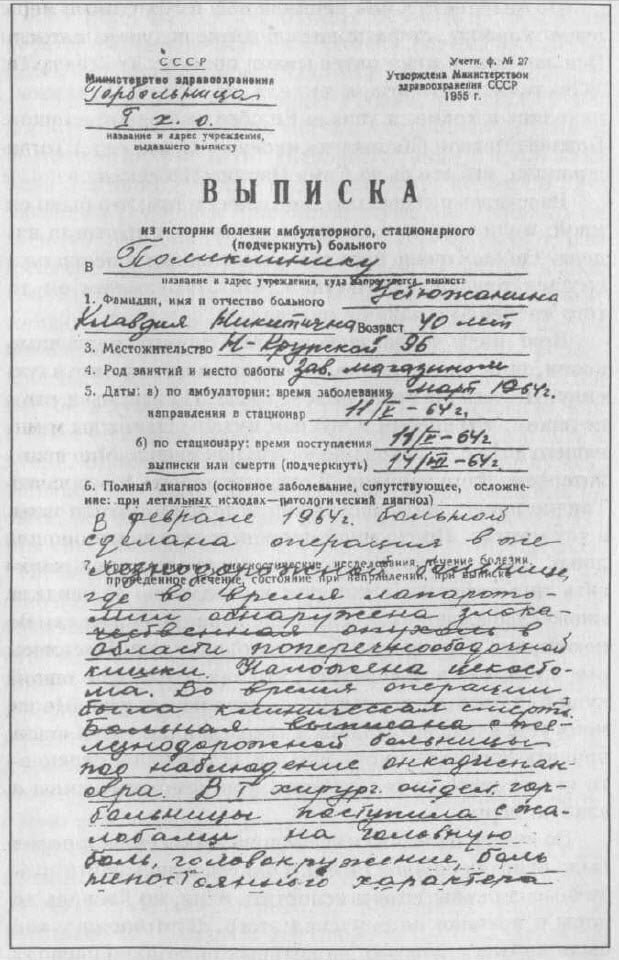 СССР
Министерство здравоохранения
Горбольница
I х. о.
название и адрес учреждения,
выдавшего выписку
Учетн. ф. № 27
Утверждена Министерством
здравоохранения СССР
1955 г.
ВЫПИСКА
из истории болезни амбулаторного, стационарного
(подчеркнуть) больного
В Поликлинику
название и адрес учреждения, куда направляется выписка
1. Фамилия, имя и отчество больного Устюжанина
Клавдия Никитична Возраст 40 лет
3. Местожительство Н-Крупской 96
4. Род занятий и место работы Зав. магазином
5. Даты: а) по амбулатории: время заболевания март 1964г.
направления в стационар 11/V-64г.
б) по стационару: время поступления 11/V-64г
выписки или смерти (подчеркнуть)
6. Полный диагноз (основное заболевание, сопутствующее, осложне-
ние: при летальных исходах—патологический диагноз)
В феврале 1964г. больной
сделана операция в же-
лезнодорожной больнице,
7. Краткий анамнез, диагностические исследования, течение болезни,
проведенное лечение, состояние при направлении, при выписке
где во время лапарото-
мии обнаружена злока-
чественная опухоль в
области поперечноободочной
кишки. Наложена цекосто-
ма. Во время операции
была клиническая смерть.
Больная выписана с же-
лезнодорожной больницы
под наблюдение онкодиспан-
сера. В I хирург. отдел. гор-
больницы поступила с жа-
лобами на головную
боль, головокружение, боль
непостоянного характера